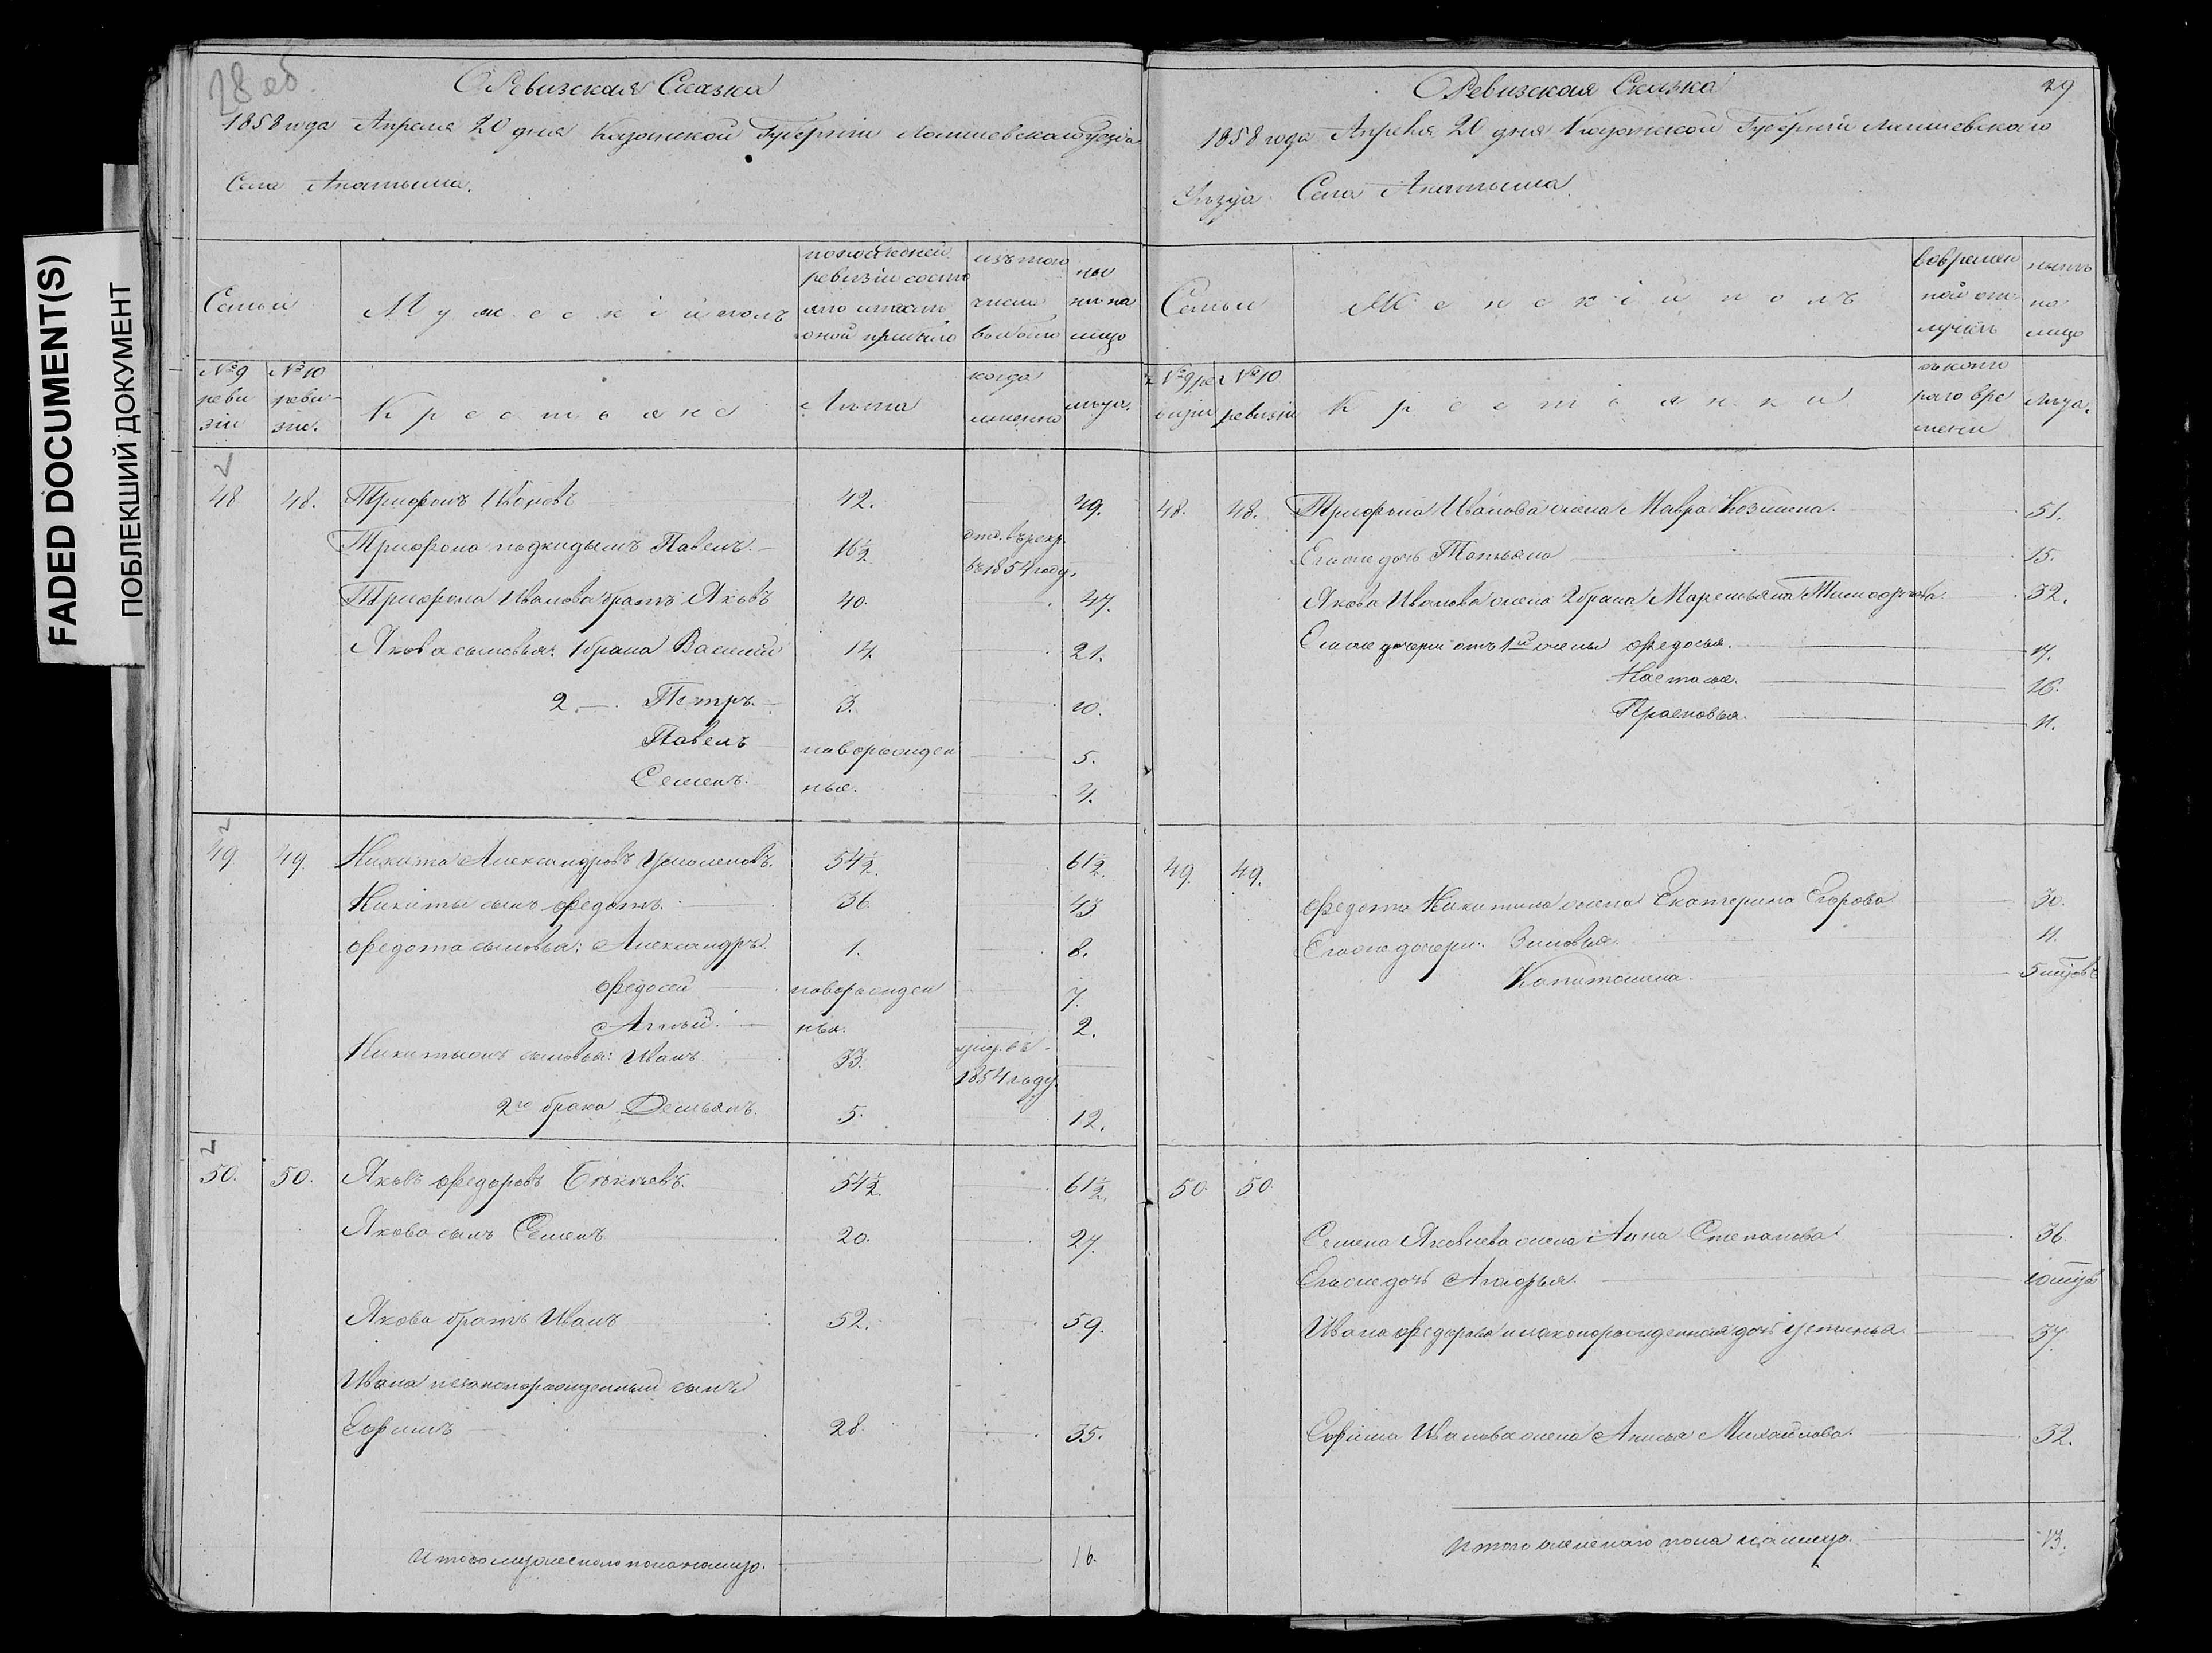 FADED DOCUMENT(S)
ПОБЛЕКШИЙ ДОКУМЕНТ
28 об.
Ревизская Сказка
1858 года Апреля 20 дня Казанской Губерніи Лаишевскаго уезда
Села
Семьи
Мужескій полъ
по последней ревизіи состояло и после оной прибыло
изъ того числа выбыло
ныне на лицо
№ 9 ревизіи
№ 10 ревизіи.
Крестьяне
Лета
когда именно
лета.
48 48. Трифонъ Ивановъ 42. 49.
Трифона подкидышъ Павелъ. 16½ отд. въ рекр. въ 1854 году.
Трифона Иванова братъ Яковъ 40. 47.
Якова сыновья: 1 брака Василий 14. 21.
2 — Петръ. 3. 10.
Павелъ новорожден 5.
Семенъ. ные. 4.
49 49. Никита Александровъ 54½. 61½.
Никиты сынъ Федотъ. 36 43
Федота сыновья: Александръ. 1. 8.
Федосей новорожден 7.
ные. 2.
Никиты сыновья: Иванъ. 33. умер. въ 1854 году.
2го брака Демьянъ. 5. 12.
50. 50. Яковъ Федоровъ 54½. 61½.
Якова сынъ Семенъ 20. 27.
Якова братъ Иванъ 52. 59.
Ивана незаконорожденный сынъ
Ефимъ 28. 35.
Итого мужескаго пола на лицо. 16.
29
Ревизская Сказка
1858 года Апреля 20 дня Казанской Губерніи Лаишевскаго
Уезда Села
Семьи
Женскій полъ
во временной отлучке
ныне на лицо
№ 9 ревизіи
№ 10 ревизіи
Крестьянки
съ котораго времени
Лета.
48. 48. Трифона Иванова жена Мавра Козмина. 51.
Его же дочь Татьяна 15.
Якова Иванова жена 2 брака Маремьяна Тимофеева 32.
Его же дочери отъ 1й жены Федосья. 17.
Настасья. 16.
Прасковья. 11.
49. 49.
Федота Никитина жена Екатерина Егорова 30.
Его же дочери: Зиновья. 11.
Капитолина. 5 мцовъ
50. 50.
Семена Яковлева жена Анна Степанова 36.
Его же дочь Агафья. 10 мцов
Ивана Федорова незаконорожденная дочь Устинья 37.
Ефима Иванова жена Анисья Михайлова. 32.
Итого женскаго пола на лицо. 13.